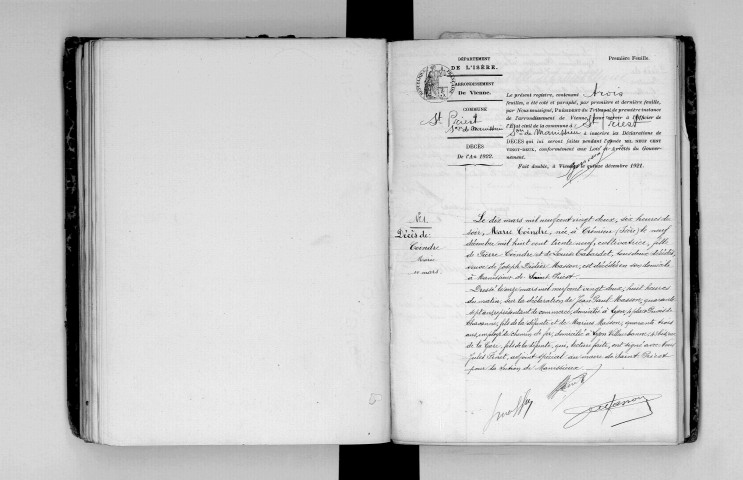 DÉPARTEMENT
DE L'ISÈRE.
ARRONDISSEMENT
De Vienne.
COMMUNE
St Priest
Son de Manissieu
DÉCÈS
De l'An 1922.
Première Feuille.
Le présent registre, contenant trois
feuilles, a été coté et paraphé, par première et dernière feuille,
par Nous soussigné, Président du Tribunal de première instance
de l'arrondissement de Vienne, pour servir à l'Officier de
l'État civil de la commune de St Priest
Son de Manissieu à inscrire les Déclarations de
DÉCÈS qui lui seront faites pendant l'année MIL NEUF CENT
VINGT-DEUX, conformément aux Lois et Arrêtés du Gouver-
nement.
Fait double, à Vienne, le quinze décembre 1921.
No 1
Décès de
Coindre
Marie
10 mars.
Le dix mars mil neuf cent vingt deux, six heures du
soir, Marie Coindre, née à Crémieu (Isère) le neuf
décembre mil huit cent trente neuf, cultivatrice, fille
de Pierre Coindre et de Louise, tous deux décédés,
veuve de Joseph Masson, est décédée en son domicile
à Manissieux de Saint Priest.
Dressé le onze mars mil neuf cent vingt deux, huit heures
du matin, sur la déclaration de Jean Paul Masson, quarante
sept ans, représentant de commerce, domicilié à Lyon,
fils de la défunte et de Marius Masson, quarante trois
ans, employé de chemin de fer, domicilié à Lyon Villeurbanne,
de la Gare, fils de la défunte, qui, lecture faite, ont signé avec Nous
Jules, adjoint spécial au maire de Saint Priest
pour la section de Manissieux.